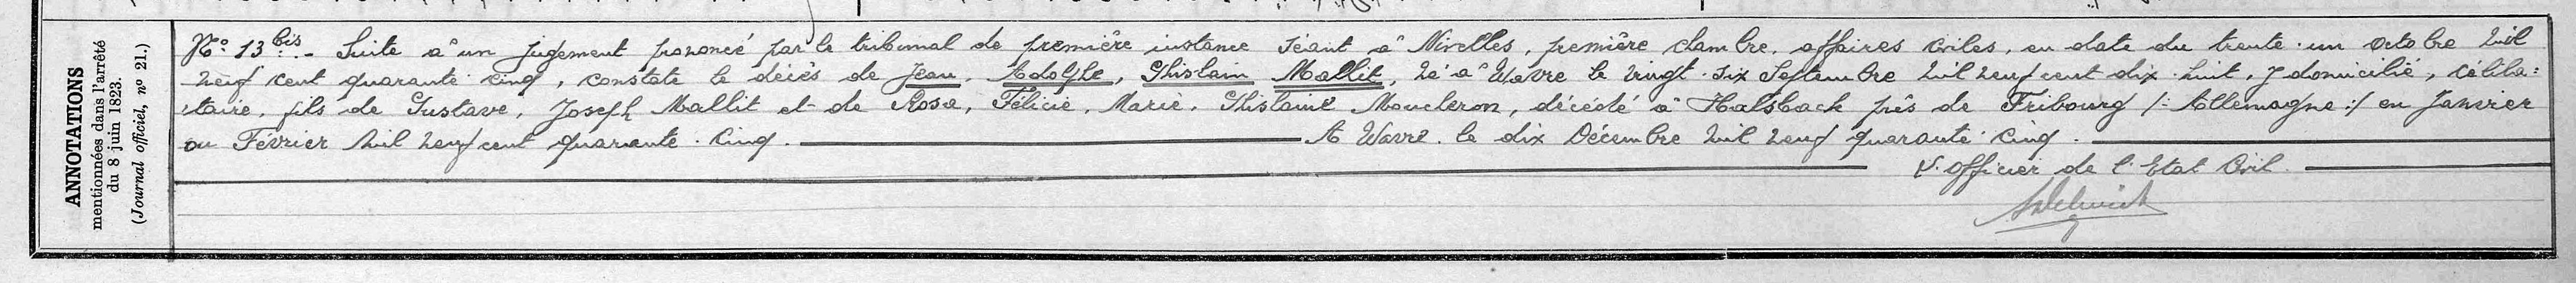 ANNOTATIONS
mentionnées dans l'arrêté
du 8 juin 1823.
(Journal officiel, n° 21.)
N° 13 bis. - Suite à un jugement prononcé par le tribunal de première instance séant à Nivelles, première chambre, affaires civiles, en date du trente-un octobre mil
neuf cent quarante cinq, constate le décès de Jean, Adolphe, Ghislain Mallit, né à Wavre le vingt-six Septembre mil neuf cent dix-huit, y domicilié, céliba=
taire, fils de Gustave, Joseph Mallit et de Rosa, Félicie, Marie, Ghislaine Moucleron, décédé à Halsback près de Fribourg /: Allemagne :/ en Janvier
ou Février mil neuf cent quarante-cinq. A Wavre, le dix Décembre mil neuf quarante cinq.
L'officier de l'Etat Civil